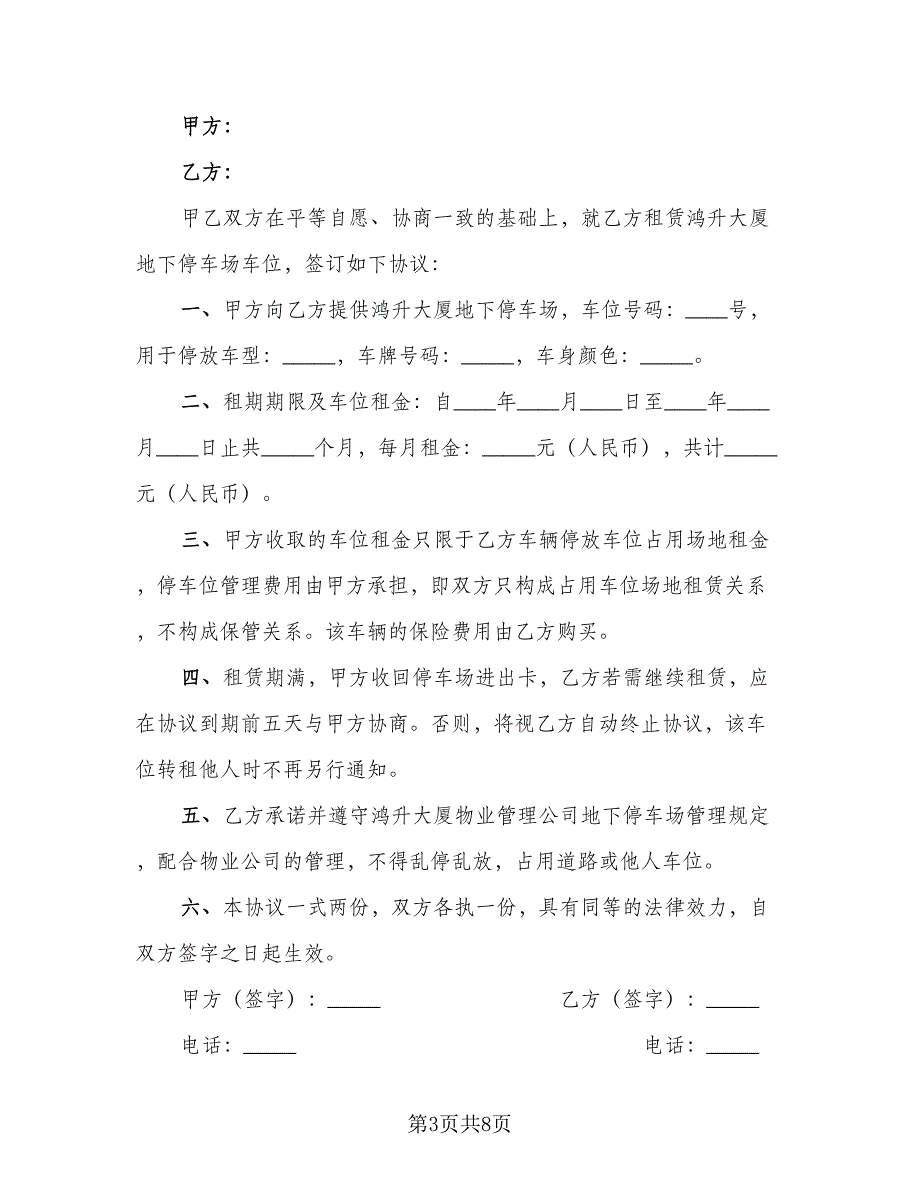 甲方：
乙方：
甲乙双方在平等自愿、协商一致的基础上，就乙方租赁鸿升大厦
地下停车场车位，签订如下协议：
一、甲方向乙方提供鸿升大厦地下停车场，车位号码：____号，
用于停放车型：_____，车牌号码：_____，车身颜色：_____。
二、租期期限及车位租金：自____年____月____日至____年____
月____日止共_____个月，每月租金：_____元（人民币），共计_____
元（人民币）。
三、甲方收取的车位租金只限于乙方车辆停放车位占用场地租金
，停车位管理费用由甲方承担，即双方只构成占用车位场地租赁关系
，不构成保管关系。该车辆的保险费用由乙方购买。
四、租赁期满，甲方收回停车场进出卡，乙方若需继续租赁，应
在协议到期前五天与甲方协商。否则，将视乙方自动终止协议，该车
位转租他人时不再另行通知。
五、乙方承诺并遵守鸿升大厦物业管理公司地下停车场管理规定
，配合物业公司的管理，不得乱停乱放，占用道路或他人车位。
六、本协议一式两份，双方各执一份，具有同等的法律效力，自
双方签字之日起生效。
甲方（签字）：_____ 乙方（签字）：_____
电话：_____ 电话：_____
第3页共8页